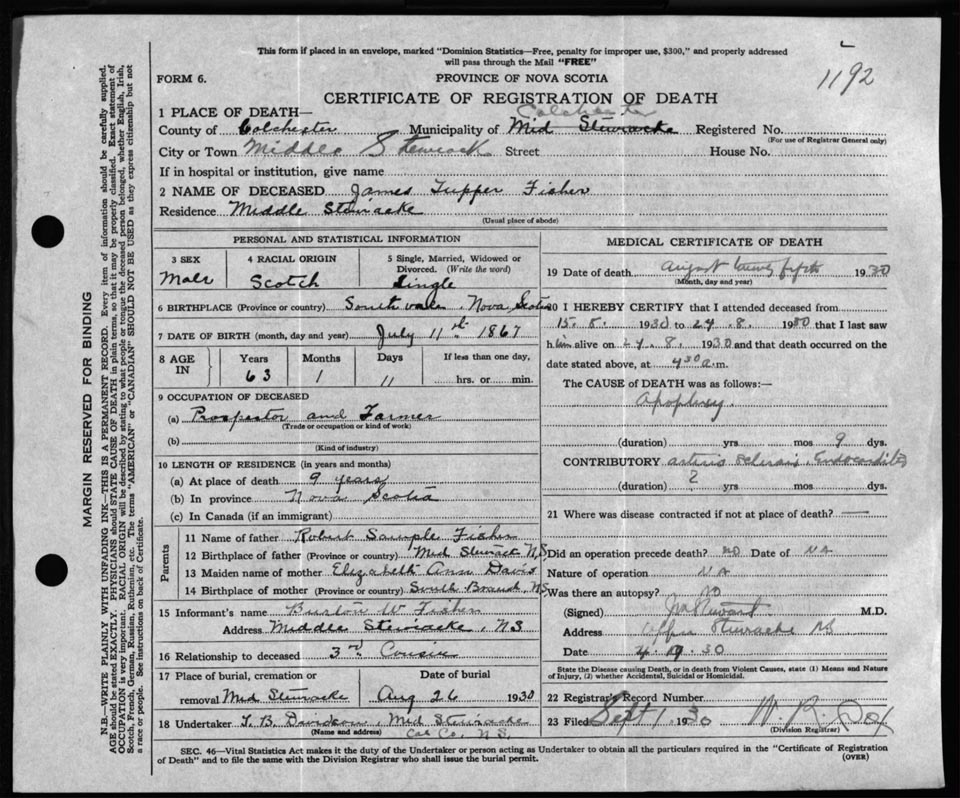 This form if placed in an envelope, marked "Dominion Statistics—Free, penalty for improper use, $300," and properly addressed
will pass through the Mail "FREE"
1192
FORM 6.
PROVINCE OF NOVA SCOTIA
CERTIFICATE OF REGISTRATION OF DEATH
1 PLACE OF DEATH—
Colchester
County of Colchester Municipality of Mid Stewiacke Registered No.
(For use of Registrar General only)
City or Town Middle Stewiack Street House No.
If in hospital or institution, give name
2 NAME OF DECEASED James Tupper Fisher
Residence Middle Stewiacke
(Usual place of abode)
PERSONAL AND STATISTICAL INFORMATION
3 SEX 4 RACIAL ORIGIN 5 Single, Married, Widowed or Divorced. (Write the word)
Male Scotch Single
6 BIRTHPLACE (Province or country) Southvale, Nova Scotia
7 DATE OF BIRTH (month, day and year) July 11th 1867
8 AGE IN Years Months Days If less than one day,
63 1 11 hrs. or min.
9 OCCUPATION OF DECEASED
(a) Prospector and Farmer
(Trade or occupation or kind of work)
(b)
(Kind of industry)
10 LENGTH OF RESIDENCE (in years and months)
(a) At place of death 9 years
(b) In province Nova Scotia
(c) In Canada (if an immigrant)
Parents
11 Name of father Robert Fisher
12 Birthplace of father (Province or country) Mid Stewiack N.S
13 Maiden name of mother Elizabeth Ann Davis
14 Birthplace of mother (Province or country) South Branch, NS
15 Informant's name Burton W Fisher
Address Middle Stewiacke, NS
16 Relationship to deceased 3rd Cousin
17 Place of burial, cremation or Date of burial
removal Mid Stewiacke Aug 26 1930
18 Undertaker T. B. Davidson, Mid Stewiacke
(Name and address) Col Co, N.S.
MEDICAL CERTIFICATE OF DEATH
19 Date of death August twenty fifth 1930
(Month, day and year)
20 I HEREBY CERTIFY that I attended deceased from
15. 8. 1930 to 24. 8. 1930 that I last saw
him alive on 24. 8. 1930 and that death occurred on the
date stated above, at 4 30 a.m.
The CAUSE OF DEATH was as follows:—
Apoplexy
(duration) yrs mos 9 dys.
CONTRIBUTORY arterio sclerosis, Endocarditis
(duration) ? yrs mos dys.
21 Where was disease contracted if not at place of death? —
Did an operation precede death? no Date of NA
Nature of operation NA
Was there an autopsy? no
(Signed) M.D.
Address Upper Stewiacke NS
Date
State the Disease causing Death, or in death from Violent Causes, state (1) Means and Nature
of Injury, (2) whether Accidental, Suicidal or Homicidal.
22 Registrar's Record Number
23 Filed Sept 1 1930 W. R. Cox
(Division Registrar)
SEC. 46—Vital Statistics Act makes it the duty of the Undertaker or person acting as Undertaker to obtain all the particulars required in the "Certificate of Registration
of Death" and to file the same with the Division Registrar who shall issue the burial permit.
(OVER)
MARGIN RESERVED FOR BINDING
N.B.—WRITE PLAINLY WITH UNFADING INK—THIS IS A PERMANENT RECORD. Every item of information should be carefully supplied.
AGE should be stated EXACTLY. PHYSICIANS should STATE CAUSE OF DEATH in plain terms, so that it may be properly classified. Exact statement of
OCCUPATION is very important. RACIAL ORIGIN will be described by stating to what people or tongue the deceased person belonged, whether English, Irish,
Scotch, French, German, Russian, Ruthenian, etc. The terms "AMERICAN" or "CANADIAN" SHOULD NOT BE USED as they express citizenship but not
a race or people. See instructions on back of Certificate.